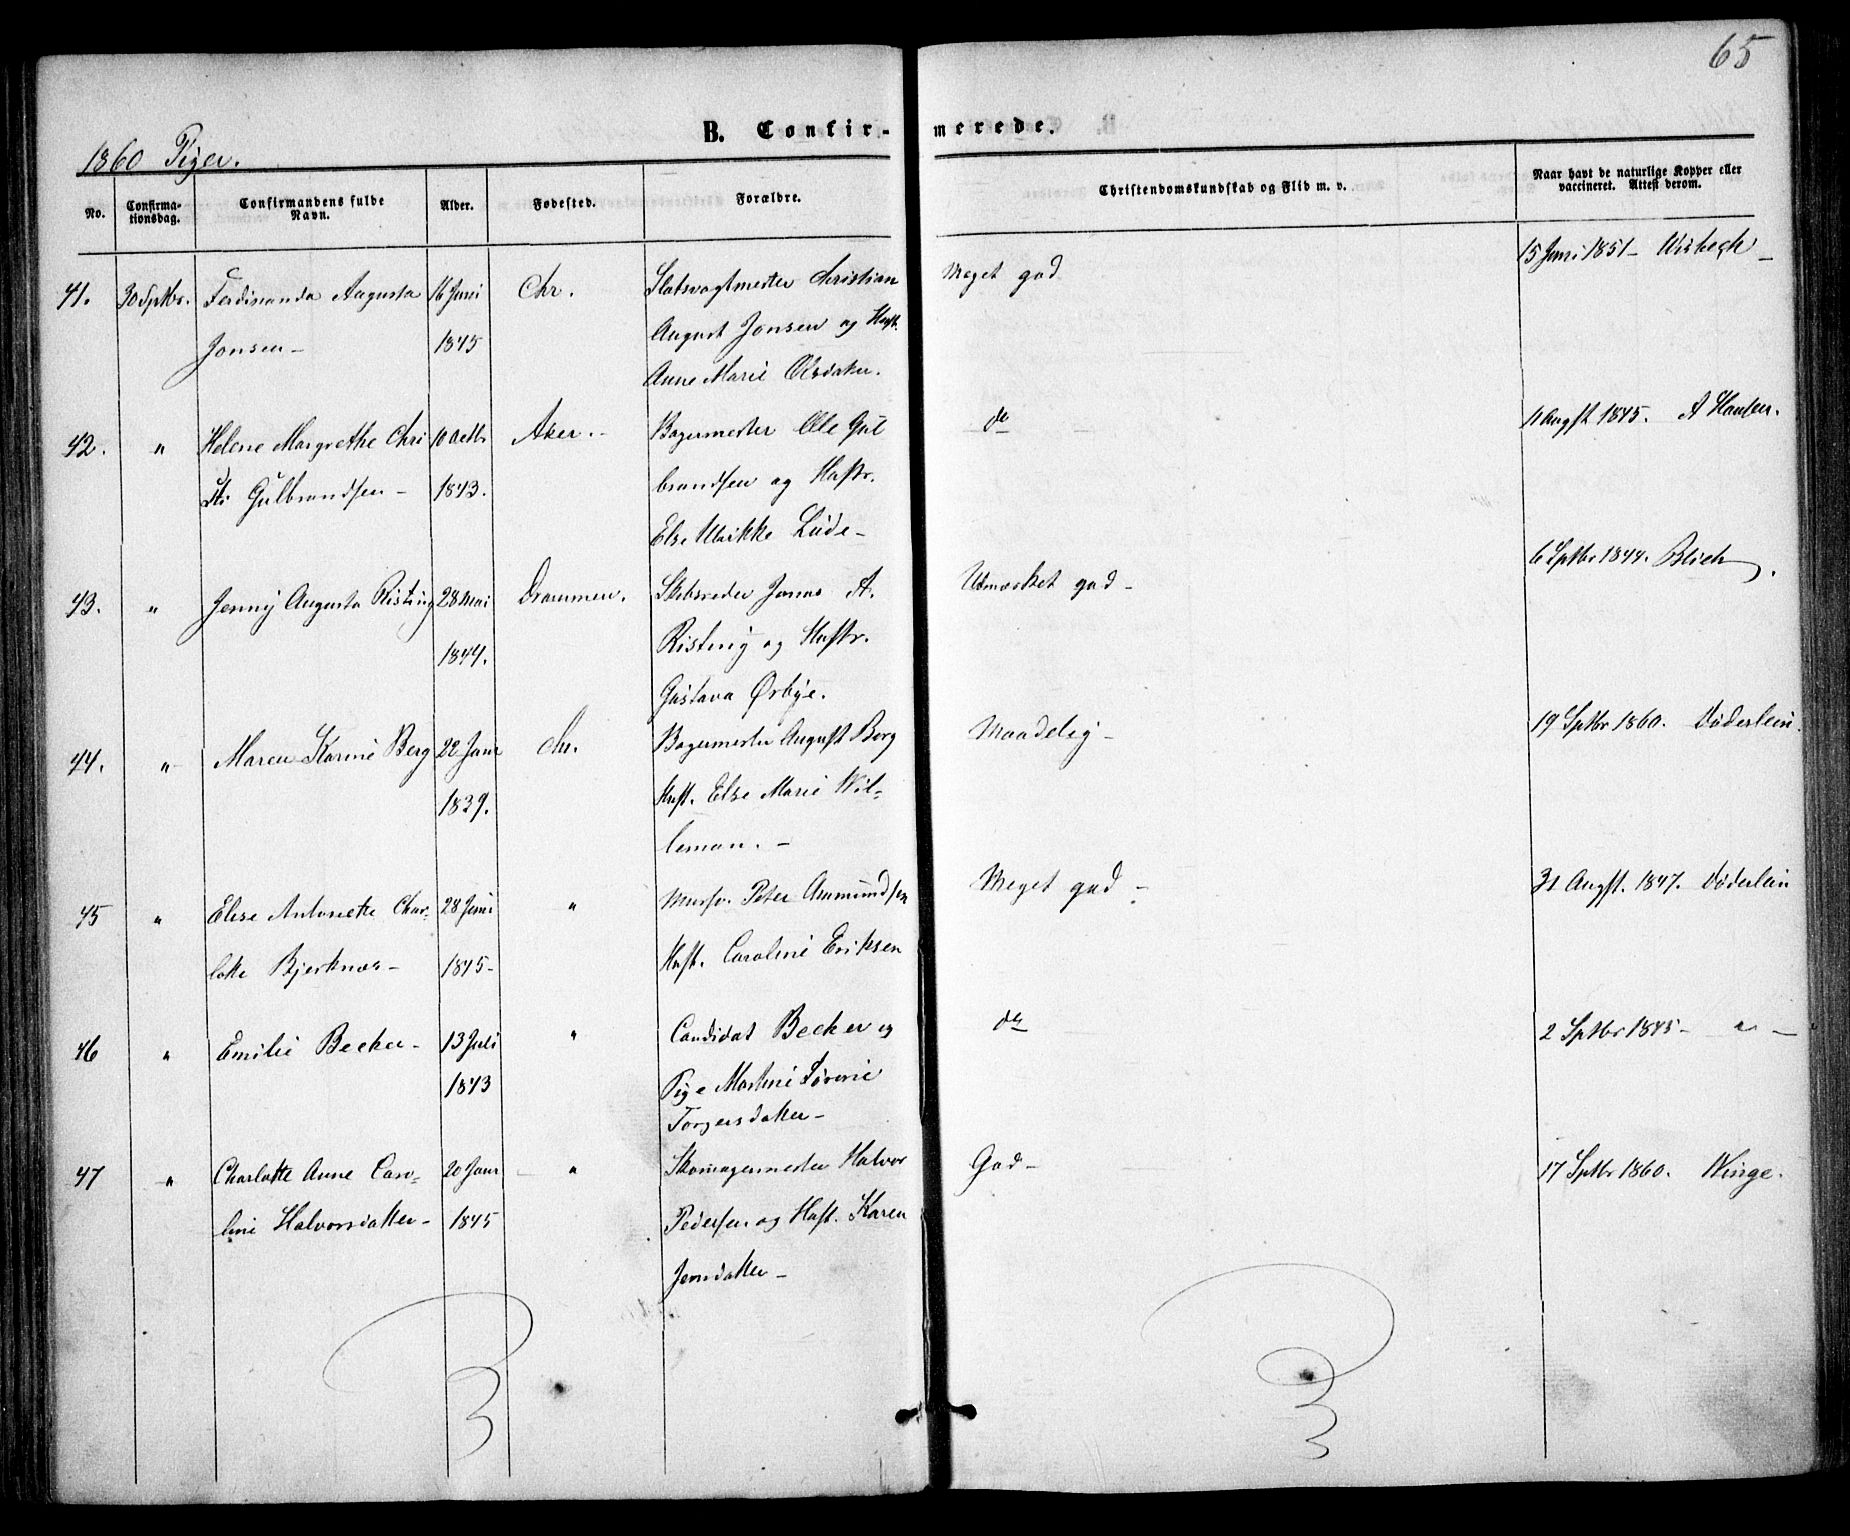 65
B. Confirmerede.
1860 Piger.
No. Confirmationsdag. Confirmandens fulde Navn. Alder. Fødested. Forældre. Christendomskundskab og Flid m. v. Naar havt de naturlige Kopper eller vaccineret. Attest derom.
41. 30 Sptbr. Ferdinanda Augusta 16 Juni Chr. Slotsvagtmester Christian Meget god 15 Juni 1851 - Wisbech -
Jonsen - 1845 August Jonsen og Hust.
Anne Marie Olsdatter.
42. " Helene Margrethe Chri 10 Octbr Aker. - Bagermester Ole Gul do 11 Augst 1845. A Hansen.
Gulbrandsen - 1843. brandsen og Hustr.
Else Ulrikke Lüde -
43. " Jenny Augusta Risting 28 Mai Drammen. Skibsreder Jonas A. Udmærket god - 6 Sptbr 1844. Blich.
1844. Risting og Hustr.
Gustava Ørbye.
44. " Maren Karine Berg 22 Janr Chr. Bagermester August Berg Maadelig - 19 Sptbr 1860. Døderlein.
1839. Hust. Else Marie Wil-
leman. -
45 " Elise Antonette Char- 28 Juni " Murso. Peter Ammundsen Meget god - 31 Augst. 1847. Døderlein
lotte Bjerknæs - 1845 - Hust. Caroline Eriksen
46 " Emilie Becker - 13 Juli " Candidat Becker og do 2 Sptbr 1845 - " -
1843 Pige Martine Sørine
Torgersdatter -
47 " Charlotte Anne Caro- 20 Janr " Skomagermester Halvor God - 17 Sptbr 1860. Winge.
line Halvorsdatter - 1845 Pedersen og Hust. Karen
Jensdatter -